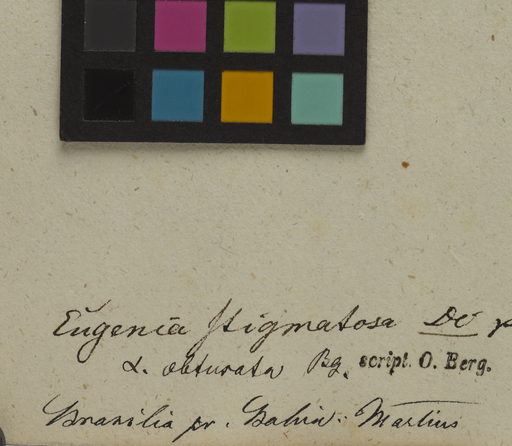 Eugenia stigmatosa DC
α. obtusata Bg. script. O. Berg.
Brasilia pr. Bahia. Martius